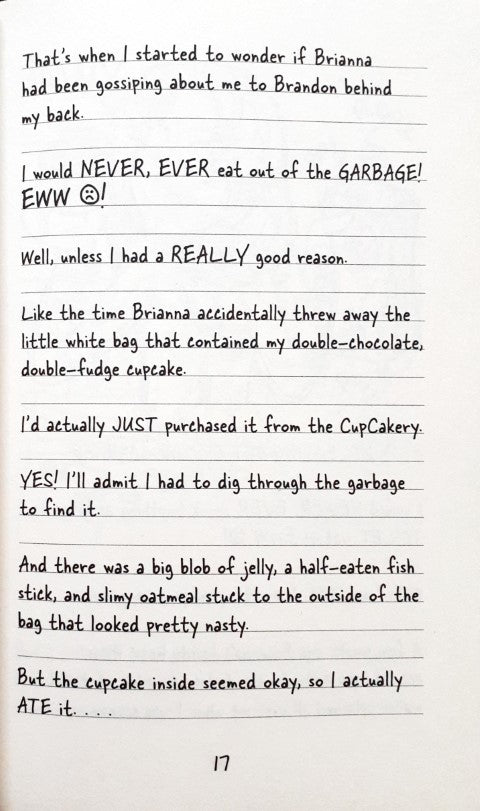 That's when I started to wonder if Brianna
had been gossiping about me to Brandon behind
my back.
I would NEVER, EVER eat out of the GARBAGE!
EWW ☹!
Well, unless I had a REALLY good reason.
Like the time Brianna accidentally threw away the
little white bag that contained my double-chocolate,
double-fudge cupcake.
I'd actually JUST purchased it from the CupCakery.
YES! I'll admit I had to dig through the garbage
to find it.
And there was a big blob of jelly, a half-eaten fish
stick, and slimy oatmeal stuck to the outside of the
bag that looked pretty nasty.
But the cupcake inside seemed okay, so I actually
ATE it. . . .
17